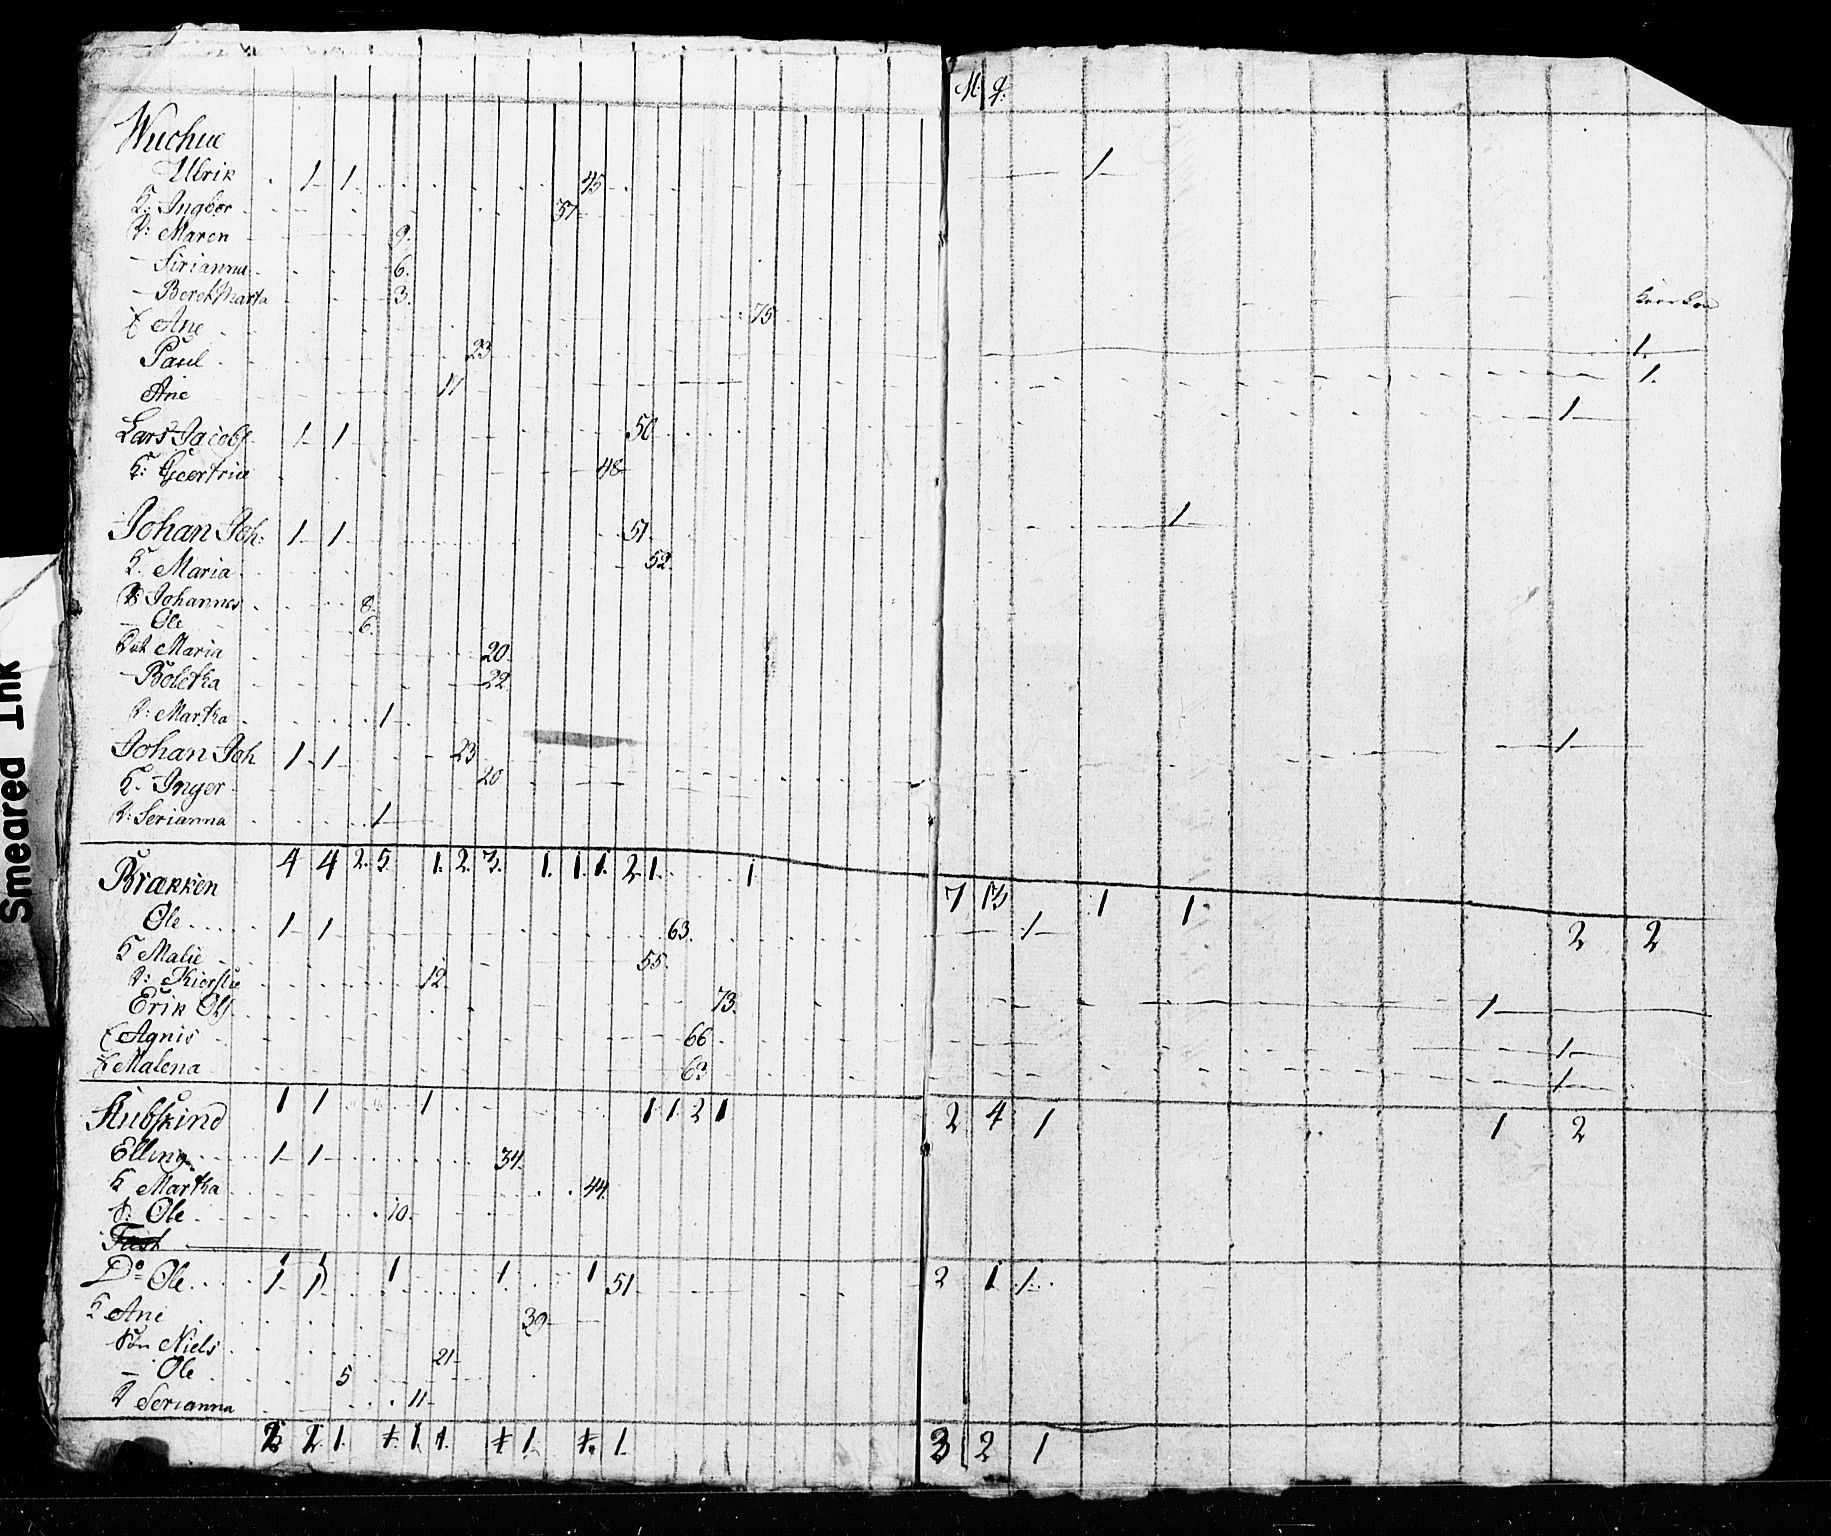 M. q.
Ulrik 1 1 45 1
K: Ingbor 37
D: Maren 9.
— Sirianna 6.
— Beret Marta 3.
Ane 75
Paul 23 1.
Ane 11 1.
Lars Jacobs 1 1 50 1
K: Geertrui 48
Johan Joh: 1 1 51 1
K. Maria 52
Johannes 8
— Ole 6
Maria 20
— Boletha 22
D: Martha 1
Johan Joh 1 1 23 1
K. Inger 20
D: Serianna 1
4 4 2. 5. 1. 2. 3. 1. 1. 1. 2 1. 1 7 13 1 1 2 2
Brækken
Ole 1 1 63. 1
K Malie 55.
D: Kierstie 12
Erik Ols 73. 1
Agnis 66 1
Malena 63 1
1 1 1 1 1 2 1 2 4 1 1 2
Stubskind
Elling 1 1 34.
K Martha 44.
S: Ole 10.
1 1 1 1 1 2 1 1
Do Ole 1 1 51
K Ane 39
Søn Niels 21
— Ole 5
D Serianna 11
1 1 1 1 1 3 2 1
Smeared Ink